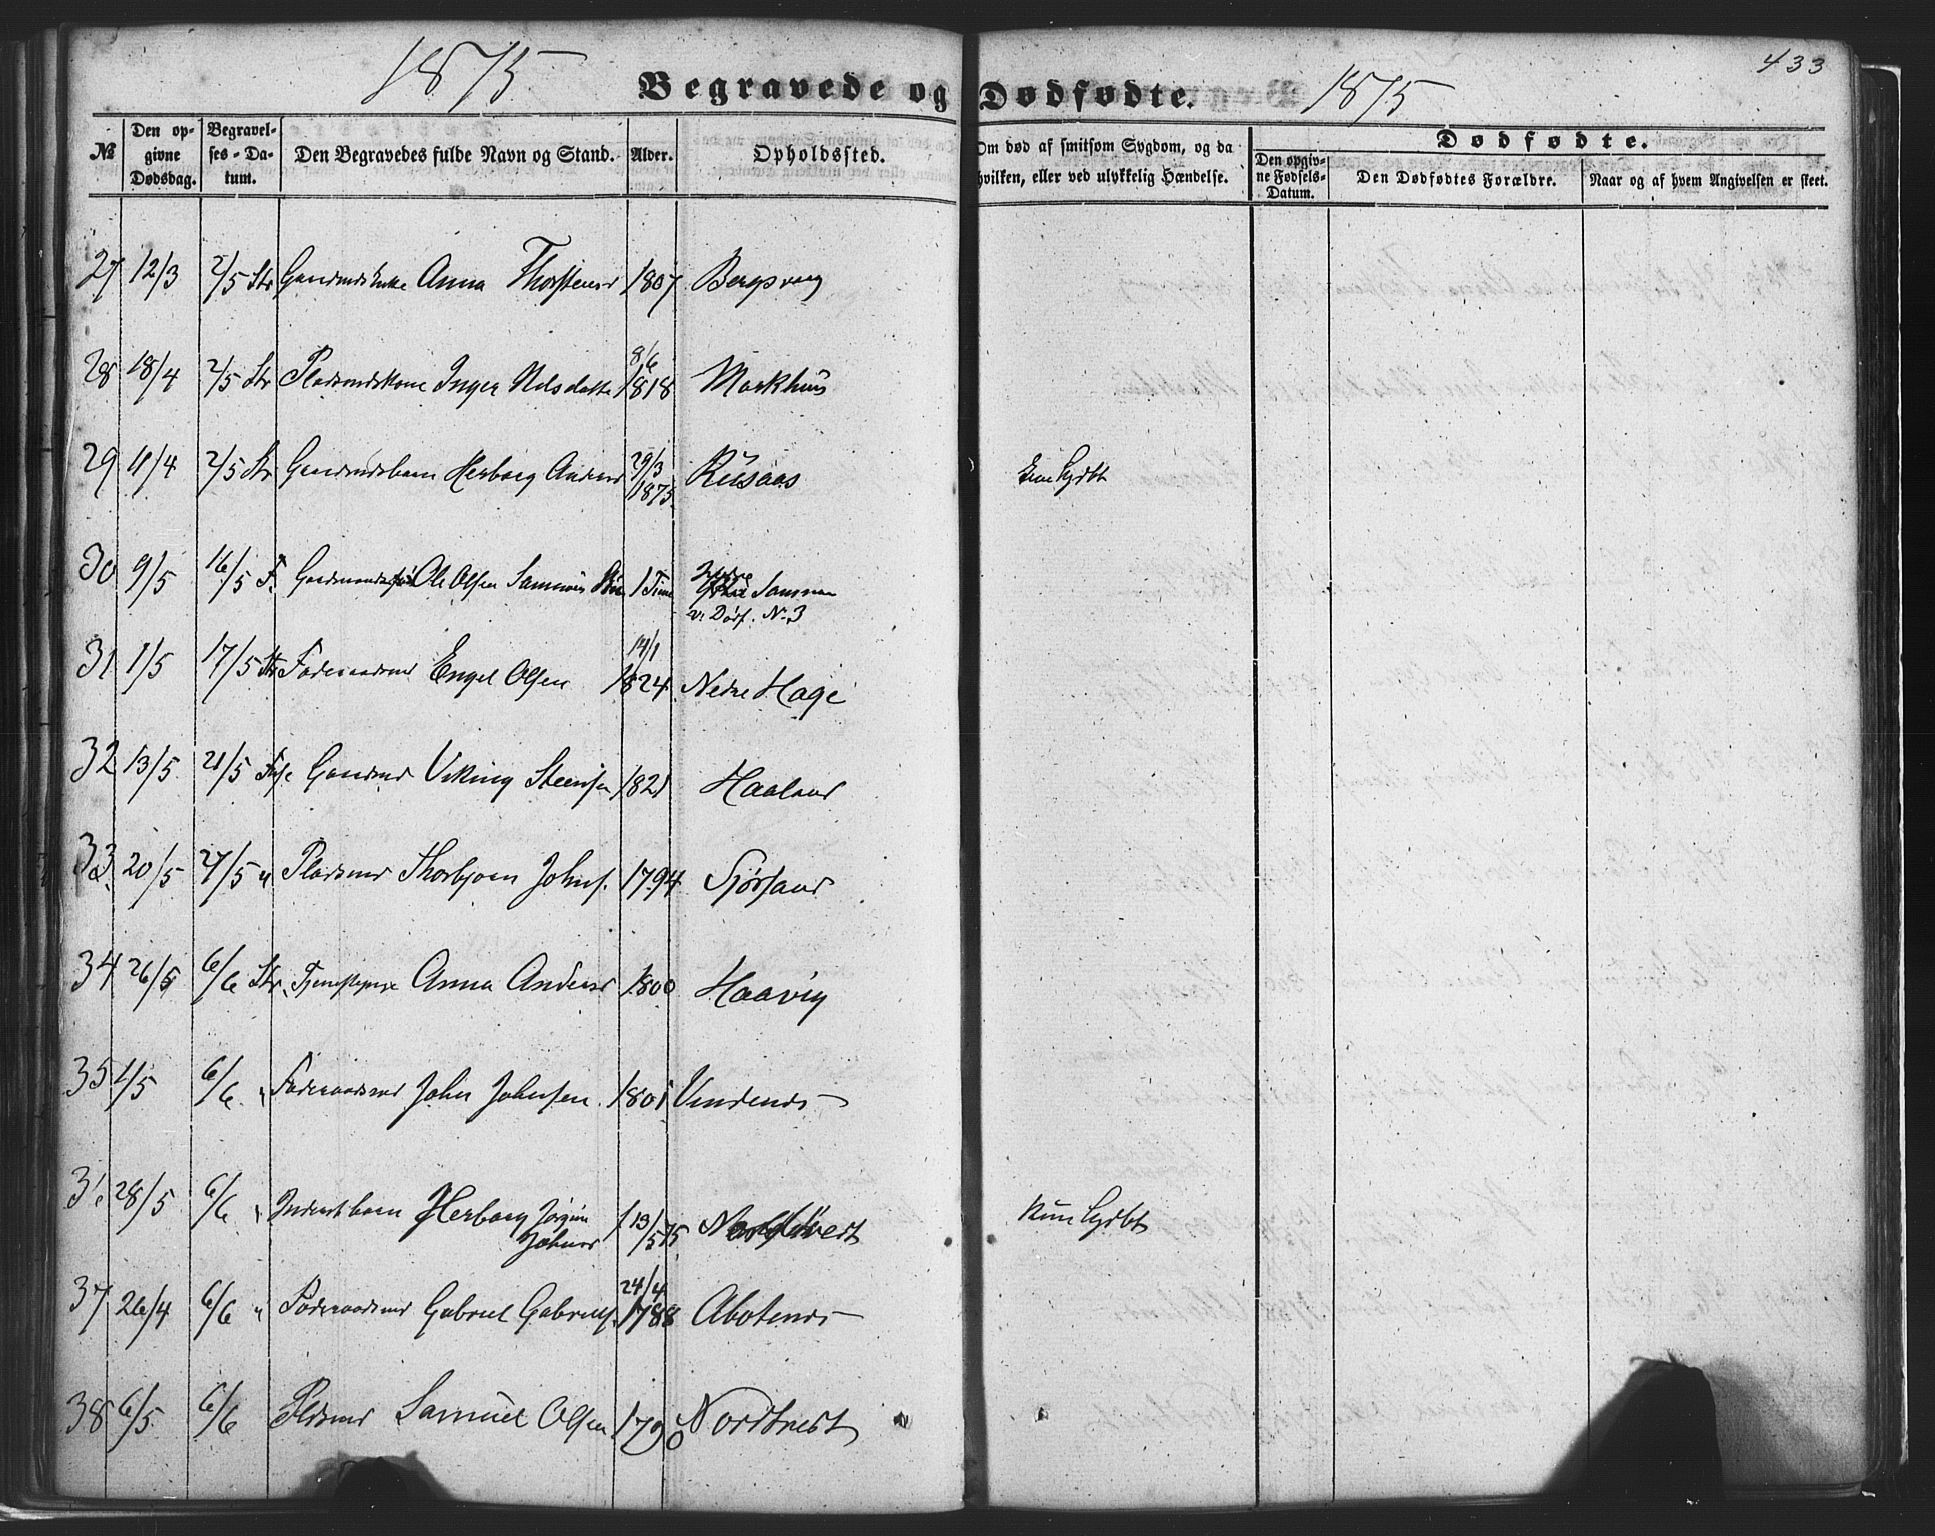 1875 Begravede og Dødfødte. 1875 433
№ Den opgivne Dødsdag. Begravelses-Datum. Den Begravedes fulde Navn og Stand. Alder. Opholdssted. Om død af smitsom Sygdom, og da hvilken, eller ved ulykkelig Hændelse. Dødfødte.
Den opgivne Fødsels-Datum. Den Dødfødtes Forældre. Naar og af hvem Angivelsen er skeet.
27 12/3 2/5 Str Anna Thorstensd 1807 Bergsvaag
28 18/4 2/5 Str Pladsmdskone Inger Nilsdatte 8/6 1818 Markhus
29 11/4 2/5 Str Gaardmdsbarn Herborg Andersd 29/3 1875. Rusaas
30 9/5 16/5 F. Ole Olsen 1 Time
v. Dørf. N. 3
31 1/5 17/5 Str Føderaadsmd Engel Olsen 14/1 1824 Nedre Hage
32 13/5 21/5 Gaardmd Viking Steensen 1821 Haaland
33. 20/5 27/5 " Pladsmd Thorbjørn Johns. 1794 Sjørsand
34 26/5 6/6 Str. Anna Andersd 1800 Haavig
35 1/5 6/6 " Føderaadsmd John Johnsen. 1801 Vindenes
28/5 6/6 " Inderstbarn Herborg Jørgine 13/5 75 kun hjdbt
Johnsd
37 26/4 6/6 " Føderaadsmd Gabriel Gabriels. 24/4 1788 Abotsnes
38 6/5 6/6 Pldsmd Samuel Olsen 1790 Nordtveit